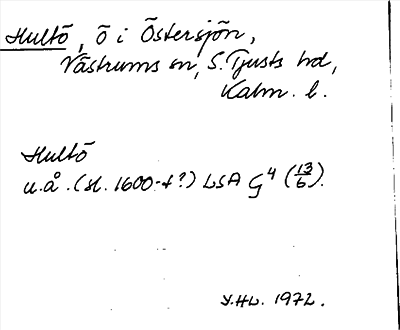 Hultö, ö i Östersjön,
Västrums sn, S. Tjusts hd,
Kalm. l.
Hultö
u.å. (sl. 1600-t?) LSA G⁴ (13/6).
Y.HL. 1972.